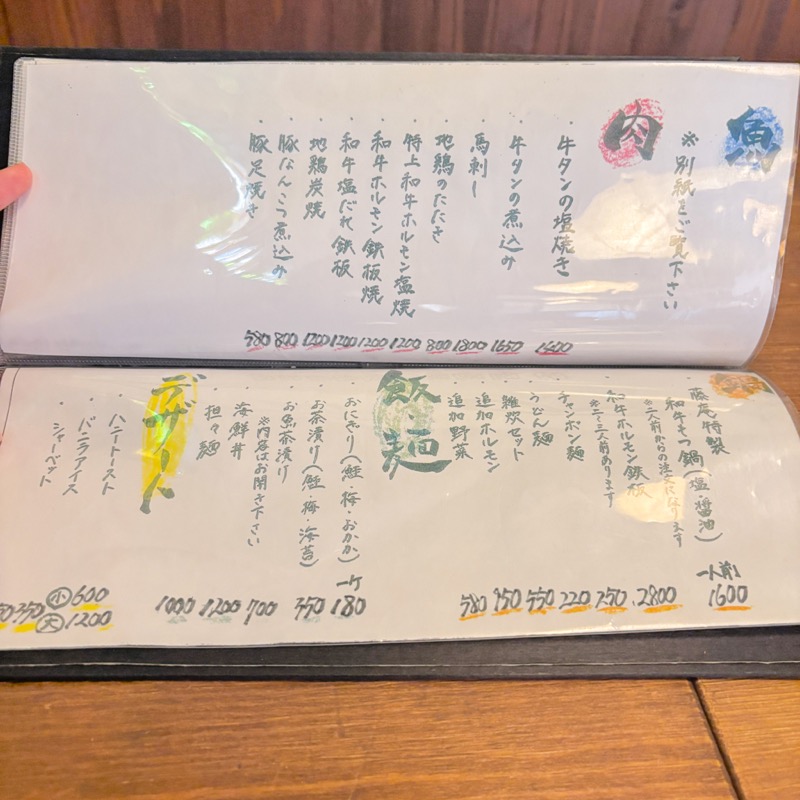 魚
※別紙をご覧下さい
肉
・牛タンの塩焼き 1600
・牛タンの煮込み 1650
・馬刺し 1800
・地鶏のたたき 800
・特上和牛ホルモン塩焼 1200
・和牛ホルモン鉄板焼 1200
・和牛塩だれ鉄板 1200
・地鶏炭焼 1200
・豚なんこつ煮込み 800
・豚足焼き 580
・藤庵特製
和牛もつ鍋(塩・醤油) 一人前 1600
※二人前からの注文になります
・和牛ホルモン鉄板 2800
※二~三人前あります
・チャンポン麺 250
・うどん麺 220
・雑炊セット 550
・追加ホルモン 750
・追加野菜 580
飯・麺
・おにぎり(鮭・梅・おかか) 一ケ 180
・お茶漬け(鮭・梅・海苔) 550
・お魚茶漬け 700
※内容はお聞き下さい
・海鮮丼 1200
・担々麺 1000
デザート
・ハニートースト 小 600 大 1200
・バニラアイス 350
・シャーベット